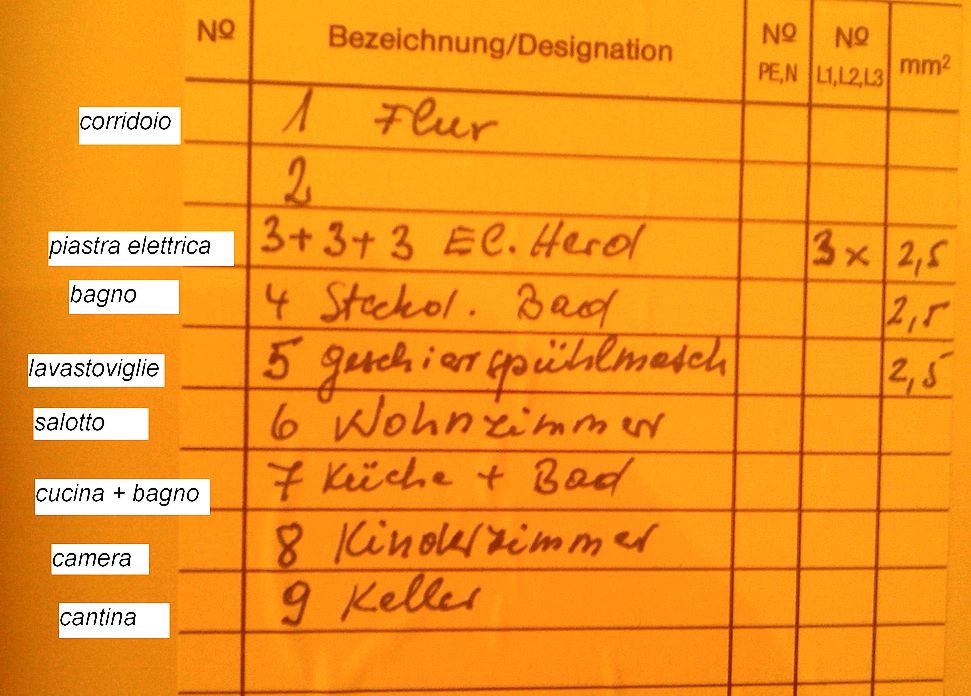 Nº Bezeichnung/Designation Nº PE,N Nº L1,L2,L3 mm²
corridoio 1 Flur
2
piastra elettrica 3+3+3 El. Herd 3x 2,5
bagno 4 Steckd. Bad 2,5
lavastoviglie 5 geschierrspühlmasch 2,5
salotto 6 Wohnzimmer
cucina + bagno 7 Küche + Bad
camera 8 Kinderzimmer
cantina 9 Keller